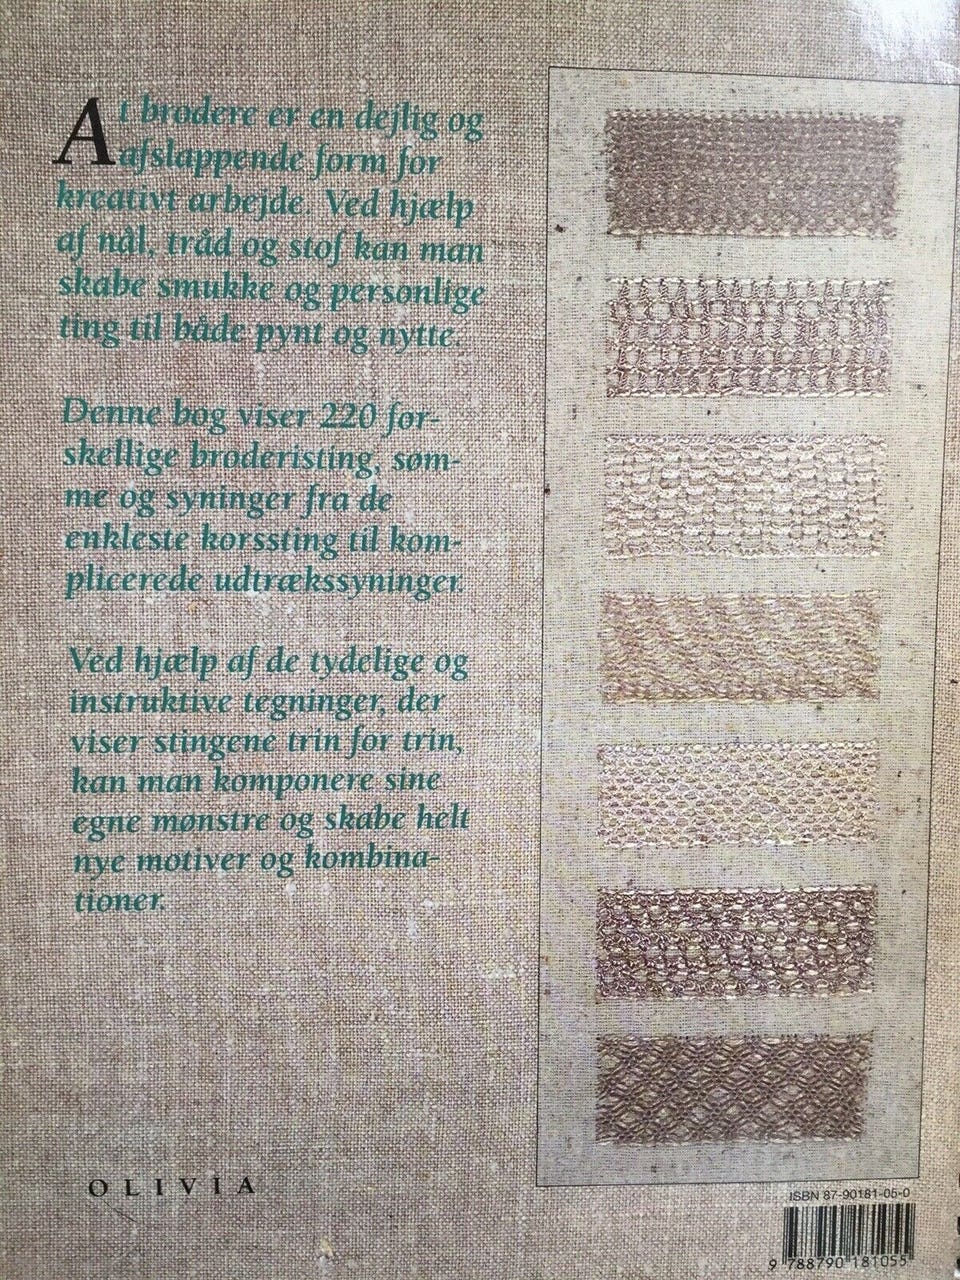 At brodere er en dejlig og
afslappende form for
kreativt arbejde. Ved hjælp
af nål, tråd og stof kan man
skabe smukke og personlige
ting til både pynt og nytte.
Denne bog viser 220 for-
skellige broderisting, søm-
me og syninger fra de
enkleste korssting til kom-
plicerede udtrækssyninger.
Ved hjælp af de tydelige og
instruktive tegninger, der
viser stingene trin for trin,
kan man komponere sine
egne mønstre og skabe helt
nye motiver og kombina-
tioner.
OLIVIA
ISBN 87-90181-05-0
9 788790 181055